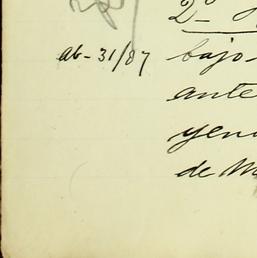 2º
ab-31/87 bajo
ante
yen
de M